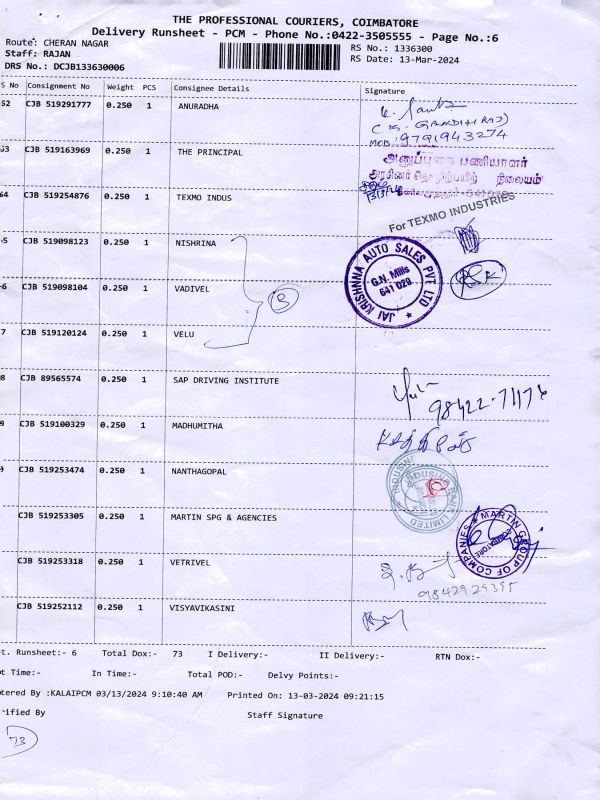 THE PROFESSIONAL COURIERS, COIMBATORE
Delivery Runsheet - PCM - Phone No.:0422-3505555 - Page No.:6
Route: CHERAN NAGAR
RS No.: 1336300
Staff: RAJAN
RS Date: 13-Mar-2024
DRS No.: DCJB133630006
S No Consignment No Weight PCS Consignee Details Signature
52 CJB 519291777 0.250 1 ANURADHA
(GANDHI RAJ)
MOB: 9791943274
53 CJB 519163969 0.250 1 THE PRINCIPAL
அனுப்புகை பணியாளர்
நிலையம்
64 CJB 519254876 0.250 1 TEXMO INDUS
13/3/24
For TEXMO INDUSTRIES
5 CJB 519098123 0.250 1 NISHRINA
JAI KRISHNNA AUTO SALES PVT LTD
G.N. Mills
641 029
6 CJB 519098104 0.250 1 VADIVEL
3
7 CJB 519120124 0.250 1 VELU
8 CJB 89565574 0.250 1 SAP DRIVING INSTITUTE
98422-71176
9 CJB 519100329 0.250 1 MADHUMITHA
CJB 519253474 0.250 1 NANTHAGOPAL
INDUSIND BANK LIMITED
CJB 519253305 0.250 1 MARTIN SPG & AGENCIES
MARTIN GROUP OF COMPANIES
COIMBATORE
CJB 519253318 0.250 1 VETRIVEL
9842929395
CJB 519252112 0.250 1 VISYAVIKASINI
t. Runsheet:- 6 Total Dox:- 73 I Delivery:- II Delivery:- RTN Dox:-
t Time:- In Time:- Total POD:- Delvy Points:-
tered By :KALAIPCM 03/13/2024 9:10:40 AM Printed On: 13-03-2024 09:21:15
rified By Staff Signature
73